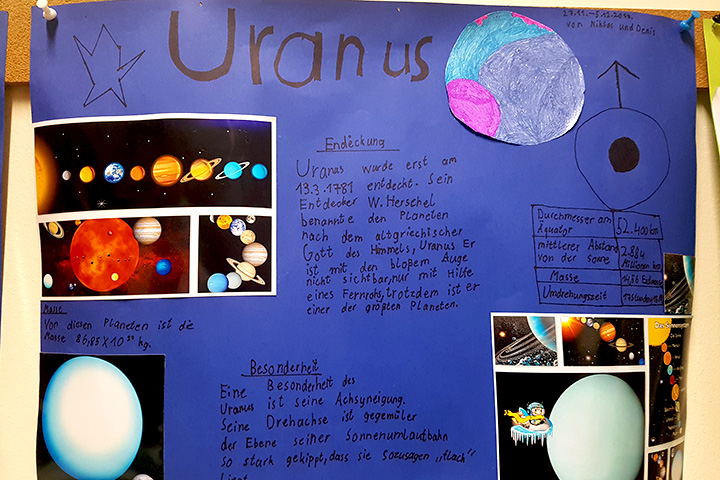 Uranus
27.11.-5.12.
von Niklas und Denis
Endeckung
Uranus wurde erst am
13.3.1781 entdecht. Sein
Entdecker W. Herschel
benannte den Planeten
nach dem altgriechischer
Gott des Himmels, Uranus Er
ist mit den bloßem Auge
nicht sichtbar, nur mit Hilfe
eines Fernrohs, trotzdem ist er
einer der größten Planeten.
Durchmesser am
Äquator
52.400km
mittlerer Abstand
von der sonne
2.884
Millionen km
Masse
14,56
Umdrehungszeit
Masse
Von diesen Planeten ist die
Masse 86,85X10 kg.
Besonderheit
Eine Besonderheit des
Uranus ist seine Achsyneigung.
Seine Drehachse ist gegemüler
der Ebene seiner Sonnenumlautbahn
so stark gekippt, dass sie sozusagen „flach"
liegt